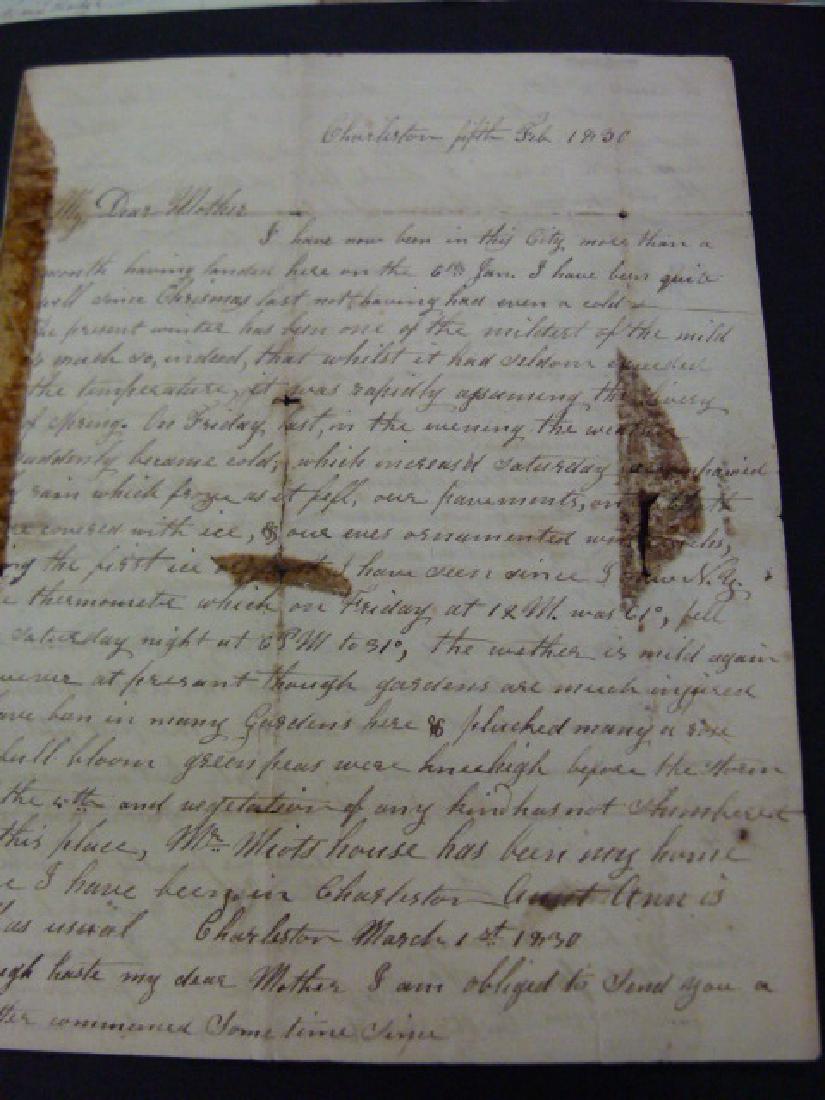 Charleston fifth Feb 1830
My Dear Mother
I have now been in this City more than a
month having landed here on the 6th Jan. I have been quite
well since Chrismas last not having had even a cold
the present winter has been one of the mildest of the mild
so much so, indeed, that whilst it had seldom exceeded
the temperature, it was rapidly assuming the livery
of spring. On Friday last, in the evening the weather
suddenly became cold, which increas'd Saturday accompanied
rain which froze as it fell, our pavements, on
covered with ice, & our eves ornamented
the first ice I have seen since I N.Y.
thermomete which on Friday at 12 M. was 61°, fell
Saturday night at 6 P M to 31°, the wether is mild again
at present though gardens are much injured
have ben in many Gardens here & plucked many a rose
full bloom green peas were kneehigh before the storm
the and vegetation of any kind has not slumbered
this place, Mr Miots house has been my home
I have been in Charleston Aunt Ann is
as usual Charleston March 1st 1830
haste my dear Mother I am obliged to send you a
commenced Some time Since